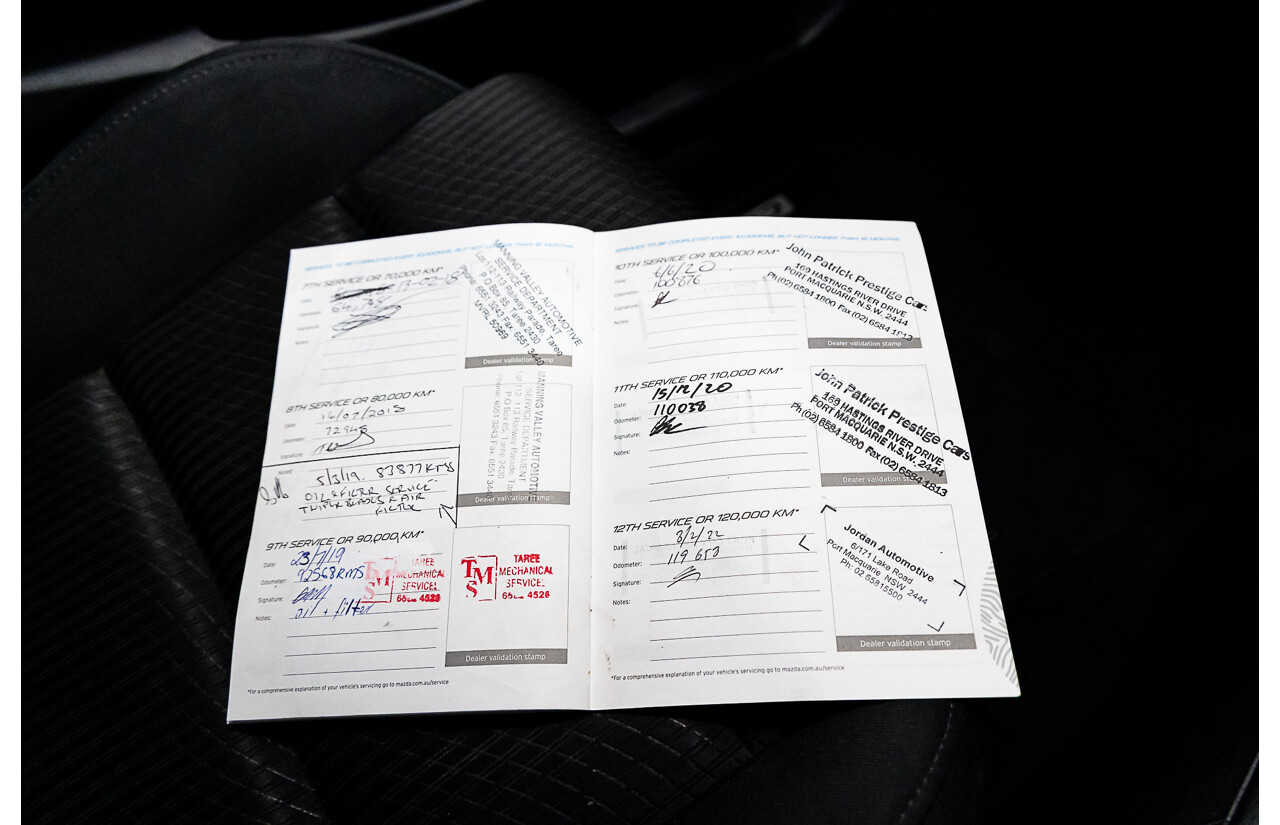 SERVICES TO BE COMPLETED EVERY 10,000KMS, BUT NOT LONGER THAN 12 MONTHS
7TH SERVICE OR 70,000 KM*
Date: 13-02-18
Odometer:
Signature:
Notes:
MANNING VALLEY AUTOMOTIVE
SERVICE DEPARTMENT
Lot 112-113 Railway Parade, Taree
P O Box 65, Taree 2430
Phone: 6551 3243 Fax: 6551 3440
MVRL 50959
Dealer validation stamp
8TH SERVICE OR 80,000 KM*
Date: 16/07/2018
Odometer: 72948
Signature:
Notes:
5/3/19. 83877 KMS
OIL & FILTER SERVICE
& AIR
FILTER
MANNING VALLEY AUTOMOTI
SERVICE DEPARTMENT
Lot 112-113 Railway Parade, Ta
P O Box 65, Taree 2430
Phone: 6551 3243 Fax: 6551 34
Dealer validation stamp
9TH SERVICE OR 90,000 KM*
Date: 23/7/19
Odometer: 92568 KMS
Signature:
Notes: oil + filter
TMS
TAREE
MECHANICAL
SERVICES
4528
TMS
TAREE
MECHANICAL
SERVICES
4528
Dealer validation stamp
*For a comprehensive explanation of your vehicle's servicing go to mazda.com.au/service
SERVICES TO BE COMPLETED EVERY 10,000KMS, BUT NOT LONGER THAN 12 MONTHS
10TH SERVICE OR 100,000 KM*
Date: /6/20
Odometer: 100676
Signature:
Notes:
John Patrick Prestige Cars
169 HASTINGS RIVER DRIVE
PORT MACQUARIE N.S.W. 2444
Ph (02) 6584 1800 Fax (02) 6584 1813
Dealer validation stamp
11TH SERVICE OR 110,000 KM*
Date: 15/12/20
Odometer: 110038
Signature:
Notes:
John Patrick Prestige Cars
169 HASTINGS RIVER DRIVE
PORT MACQUARIE N.S.W. 2444
Ph (02) 6584 1800 Fax (02) 6584 1813
Dealer validation stamp
12TH SERVICE OR 120,000 KM*
Date: 3/2/22
Odometer: 119 653
Signature:
Notes:
Jordan Automotive
6/171 Lake Road
Port Macquarie NSW 2444
Ph: 02 65815500
Dealer validation stamp
*For a comprehensive explanation of your vehicle's servicing go to mazda.com.au/service